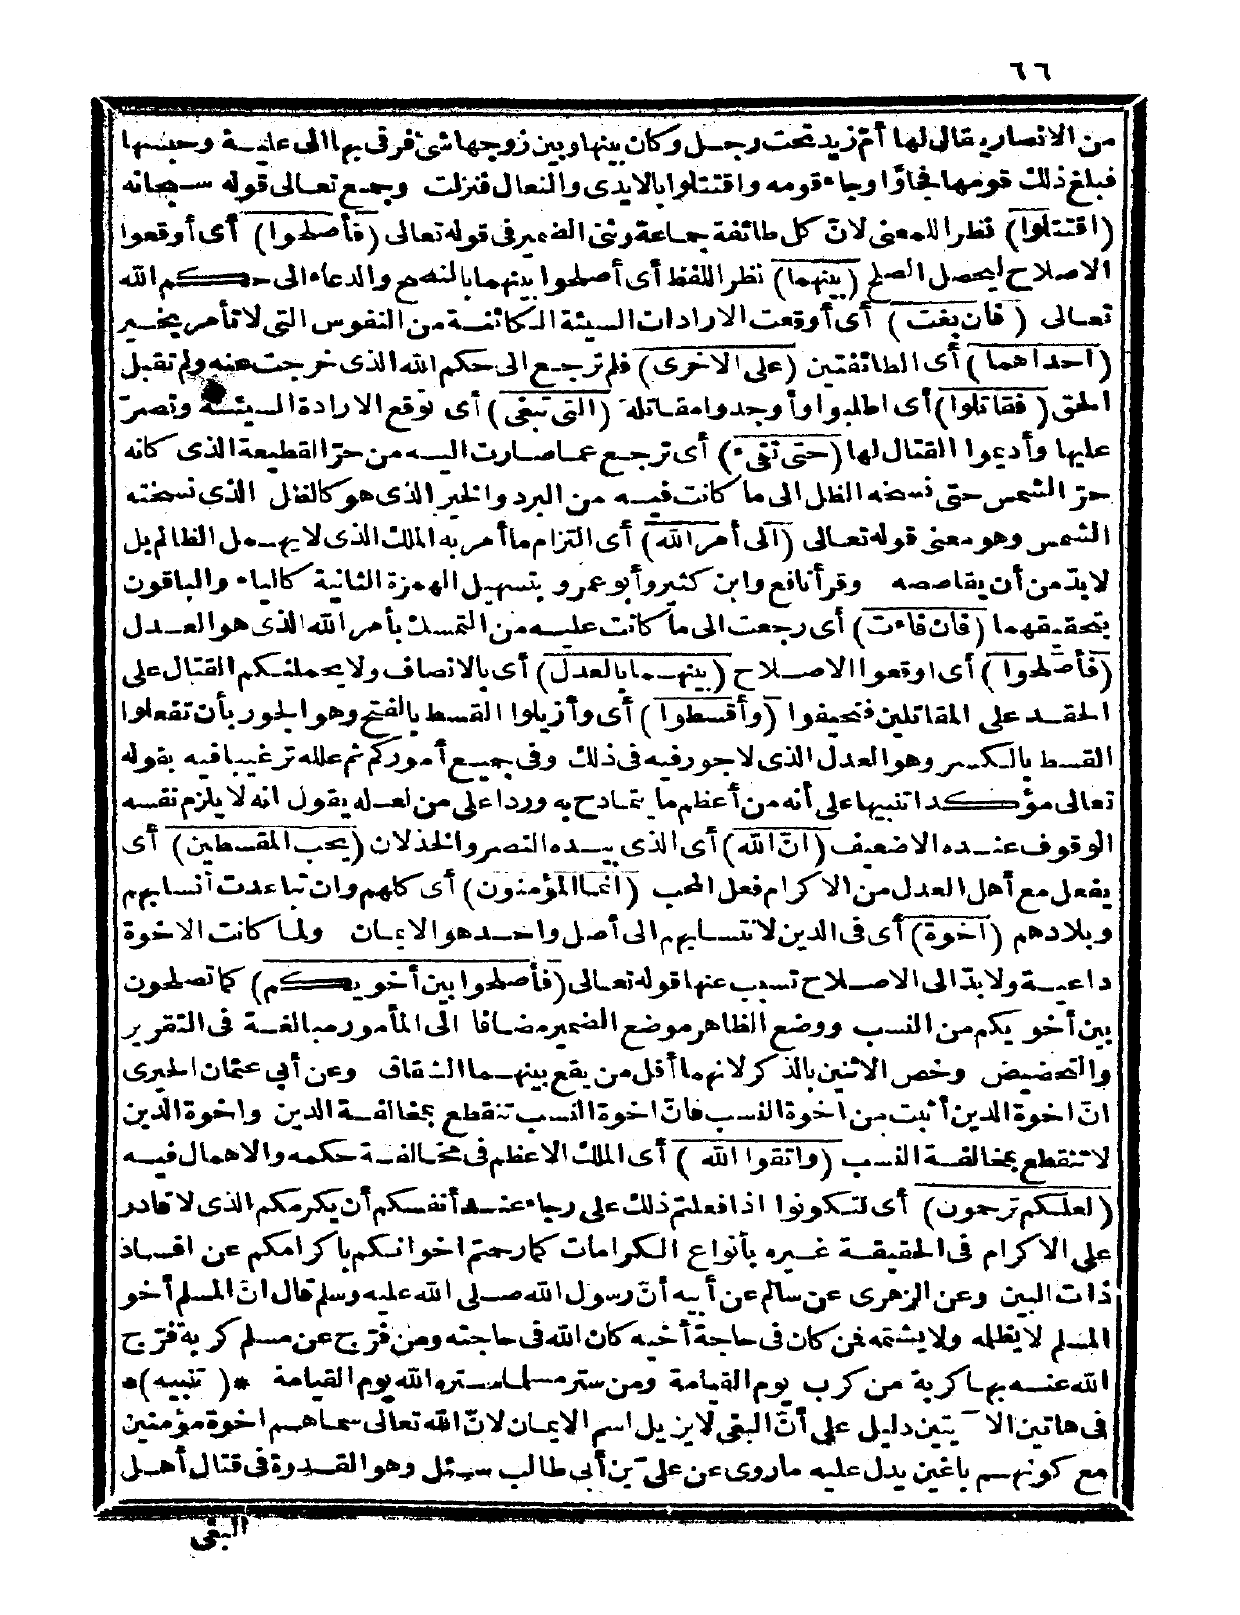 ٦٦
من الانصار يقال لها أم زيد تحت رجل وكان بينها وبين زوجها شئ فرقى بها الى علية وحبسها
فبلغ ذلك قومها فجاؤا وجاء قومه واقتتلوا بالايدى والنعال فنزلت وجمع تعالى قوله سبحانه
(اقتتلوا) نظرا للمعنى لانّ كل طائفة جماعة وثنى الضمير فى قوله تعالى (فأصلحوا) أى أوقعوا
الاصلاح ليحصل الصلح (بينهما) نظر اللفظ أى أصلحوا بينهما بالنصح والدعاء الى حكم الله
تعالى (فان بغت) أى أوقعت الارادات السيئة الكائنة من النفوس التى لا تأمر بخير
(احداهما) أى الطائفتين (على الاخرى) فلم ترجع الى حكم الله الذى خرجت عنه ولم تقبل
الحق (فقاتلوا) أى اطلبوا وأوجدوا مقاتلة (التى تبغى) أى توقع الارادة السيئة وتصرّ
عليها وأديموا القتال لها (حتى تفىء) أى ترجع عما صارت اليه من حرّ القطيعة الذى كانه
حرّ الشمس حتى نسخه الظل الى ما كانت فيه من البرد والخير الذى هو كالظل الذى نسخته
الشمس وهو معنى قوله تعالى (الى أمر الله) أى التزام ما أمر به الملك الذى لا يهمل الظالم بل
لا بدّ من أن يقاصصه وقرأ نافع وابن كثير وأبو عمرو بتسهيل الهمزة الثانية كالياء والباقون
بتحقيقهما (فان فاءت) أى رجعت الى ما كانت عليه من التمسك بأمر الله الذى هو العدل
(فأصلحوا) أى اوقعوا الاصلاح (بينهما بالعدل) أى بالانصاف ولا يحملنكم القتال على
الحقد على المقاتلين فتحيفوا (وأقسطوا) أى وأزيلوا القسط بالفتح وهو الجور بأن تفعلوا
القسط بالكسر وهو العدل الذى لا جور فيه فى ذلك وفى جميع أموركم ثم علله ترغيبا فيه بقوله
تعالى مؤكدا تنبيها على أنه من أعظم ما يتمادح به وردا على من لعله يقول انه لا يلزم نفسه
الوقوف عنده الاضعيف (انّ الله) أى الذى بيده النصر والخذلان (يحب المقسطين) أى
يفعل مع أهل العدل من الاكرام فعل المحب (انما المؤمنون) أى كلهم وان تباعدت أنسابهم
وبلادهم (اخوة) أى فى الدين لانتسابهم الى أصل واحد هو الايمان ولما كانت الاخوة
داعية ولا بدّ الى الاصلاح تسبب عنها قوله تعالى (فأصلحوا بين أخويكم) كما تصلحون
بين أخويكم من النسب ووضع الظاهر موضع الضمير مضافا الى المأمور مبالغة فى التقرير
والتحضيض وخص الاثنين بالذكر لانهما أقل من يقع بينهما الشقاق وعن أبي عثمان الحيرى
انّ اخوة الدين أثبت من اخوة النسب فانّ اخوة النسب تنقطع بمخالفة الدين واخوة الدين
لا تنقطع بمخالفة النسب (واتقوا الله) أى الملك الاعظم فى مخالفة حكمه والاهمال فيه
(لعلكم ترحمون) أى لتكونوا اذا فعلتم ذلك على رجاء عند أنفسكم أن يكرمكم الذى لا قادر
على الاكرام فى الحقيقة غيره بأنواع الكرامات كما رحمتم اخوانكم باكرامكم عن افساد
ذات البين وعن الزهرى عن سالم عن أبيه أنّ رسول الله صلى الله عليه وسلم قال انّ المسلم أخو
المسلم لا يظلمه ولا يشتمه فمن كان فى حاجة أخيه كان الله فى حاجته ومن فرّج عن مسلم كربة فرّج
الله عنه بها كربة من كرب يوم القيامة ومن ستر مسلما ستره الله يوم القيامة *(تنبيه)*
فى هاتين الآيتين دليل على أنّ البغى لا يزيل اسم الايمان لانّ الله تعالى سماهم اخوة مؤمنين
مع كونهم باغين يدل عليه ماروى عن علىّ بن أبي طالب سئل وهو القدرة فى قتال أهل
البغى